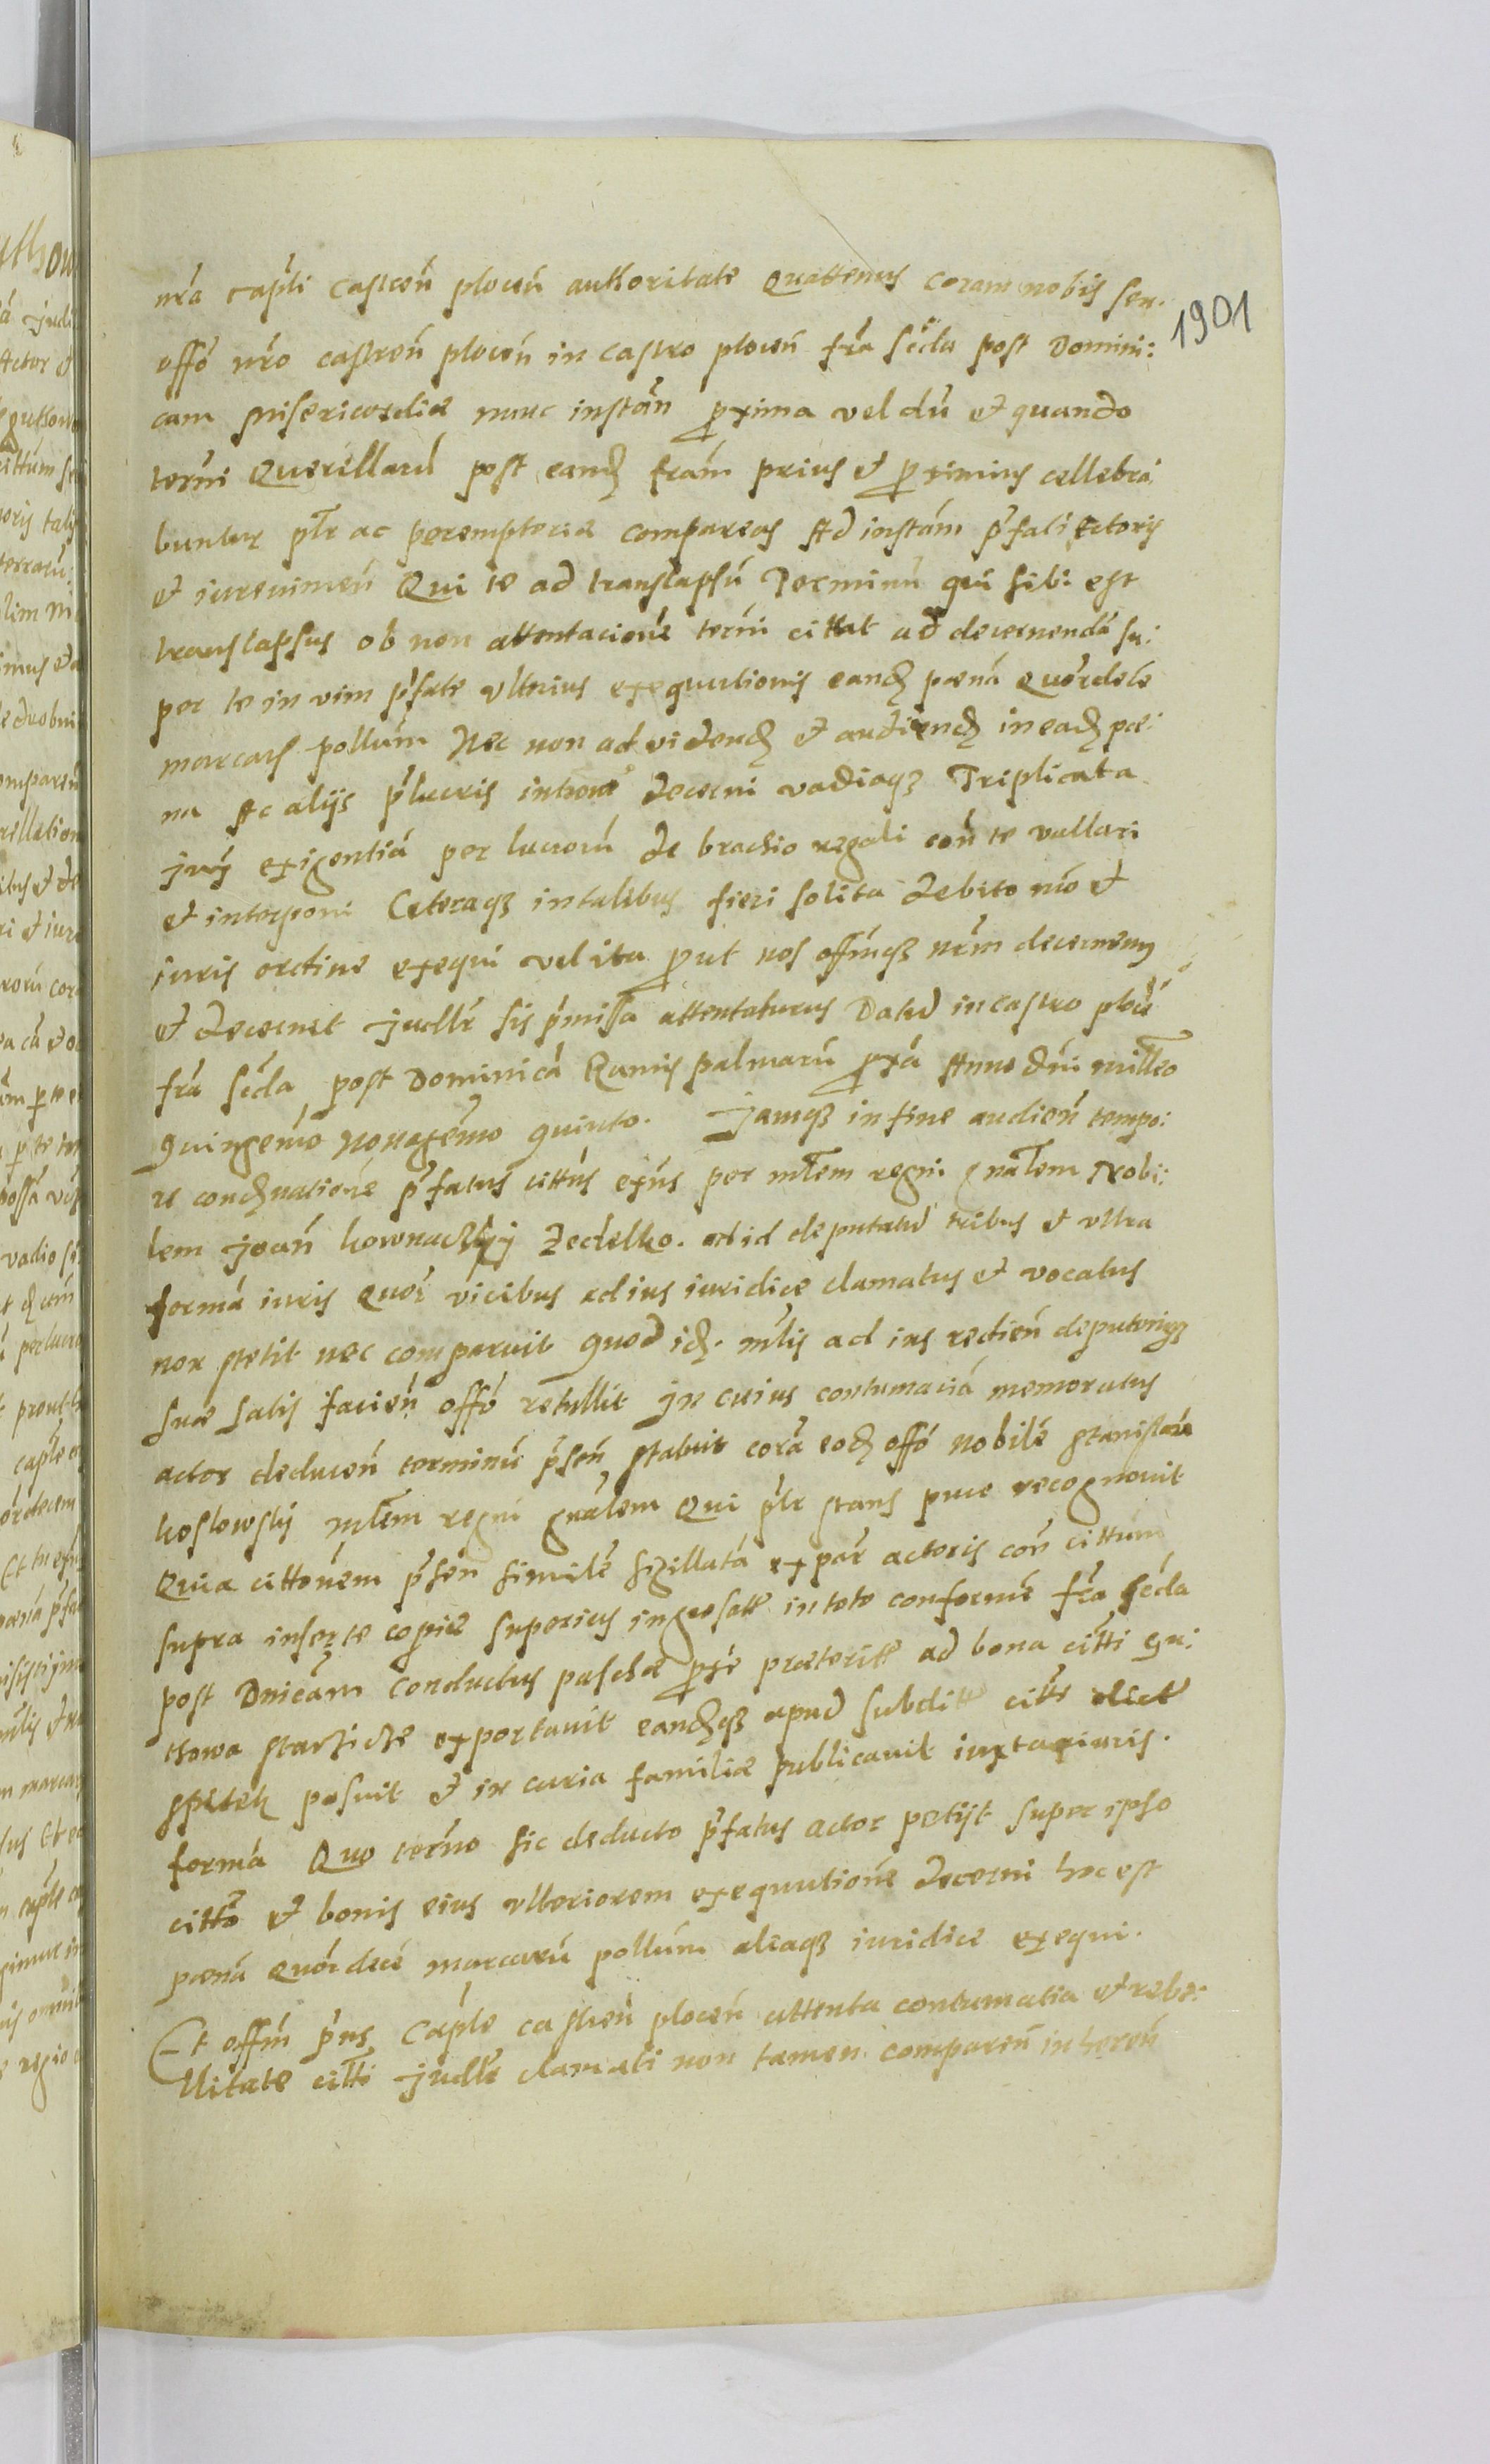 nr̃a capti castren̄ plocen̄ authoritate Quattenus coram nobis seu.
offo nr̃o castren̄ plocen̄ in castro plocen̄ fr̃a sc̃da post Domini:
1901
cam Misericordiæ nunc instan̄ proxima vel dū et quando
termi Querellarū post eandȩ fr̃am prius et proximius cellebra
buntur ptr ac peremptoriæ compareas Ad instām pr̃fati Actoris
et iurevincen̄ Qui te ad translapsū Terminū qui sibi est
translapsus ob non attentacionē termi cittat ad decernendā su:
per te in vim pr̃fate ulterius exequutionis eandȩ pœnā Quordecē
marcarū pollum Nec non ad videndȩ et audiendȩ in eadȩ pœ:
na Ac alijs pr̃lucris decerni vadiaqȝ Triplicata
jurȩ exigentiā per lucrorū de brachio regali con̄ te vallari
et interponi Ceteraqȝ in talibus fieri solita debito mō et
iuris ordine exequi vel ita prout nos offm̄qȝ nr̃m decernemȝ
et decernet judllr̃ sis pr̃missa attentaturus Datū in castro plocn̄
fr̃a sc̃da post Dominicā Ramis palmarū proxā Anno dn̄i mill̃eo
quingem̃o nonagem̃o quinto. Jamqȝ in fine audien̄ tempo:
re condȩnationē pr̃fatus citt̃us exn̄s per mt̃em regni gnãlem Nobi:
lem Joan̄ kownaczkij Zedelko. ad id deputatū tribus et ultra
formā iuris Quor̃ vicibus ad ius iuridice clamatus et vocatus
non stetit nec comparuit quod idȩ. mlis ad ius redien̄ deputonisqȝ
suæ satis facien̄ offo retullit In cuius contumaciā memoratus
actor deducen̄ terminū pr̃sen̄ statuit corā eodȩ offo nobilē Stanislaū
koslowskij mt̃em regni gnãlem Qui pr̃lr stans pure recognovit
Quia cittonem pr̃sen̄ similē sigillatā ex par̃ actoris con̄ cittum
supra inserte copiæ superius ingrosatæ in toto conformē fr̃a sc̃da
post Dnicam Conductus paschæ proxē præteritæ ad bona citti Gu:
thowo starzicze exportavit eandȩqȝ apud subditū citti dictū
spitek posuit et in curia familiæ publicavit iuxta iuris.
formā Quo ter̃no sic deducto pr̃fatus actor petijt super ipso
citt̃o et bonis eius ulteriorem exequutionē decerni hoc est
pœnā quor̃decē marcarū pollum aliaqȝ iuridice exequi.
Et offm̄ pr̃ns Caple castren̄ plocen̄ attenta contumatia et rebe:
llitate citti judllr̃ clamati non tamen comparen̄ inheren̄